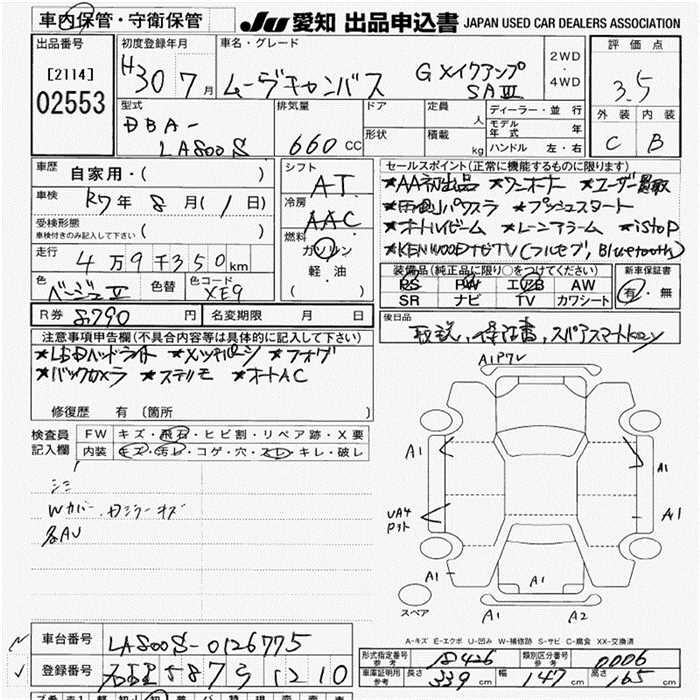 車内保管・守衛保管 JU 愛知 出品申込書 JAPAN USED CAR DEALERS ASSOCIATION
出品番号 初度登録年月 車名・グレード 2WD・4WD 評価点
[2114] H30年7月 ムーヴキャンバス Gメイクアップ SAⅢ 3.5
02553 型式 排気量 ドア 定員 人 ディーラー・並行 外装 内装
DBA-LA800S 660CC 形状 積載 kg モデル年式 年 C B
ハンドル 左・右
車歴 自家用・( ) シフト AT セールスポイント(正常に機能するものに限ります)
車検 R7年8月(1日) 冷房 AAC ★AA初出品 ★ワンオーナー ★ユーザー買取
受検形態 車検付きのみ記入して下さい ( ) 燃料 ★両側パワスラ ★プッシュスタート
走行 4万9千350km ガソリン ★オートハイビーム ★レーンアラーム ★istop
軽油 ( ) ★KENWOODナビTV(フルセグ, Bluetooth)
色 ベージュⅡ 色替 色コード XE9 装備品(純正品に限り○をつけてください) 新車保証書
PS PW エアB AW 有・無
SR ナビ TV カワシート
R券 8790円 名変期限 月 日 後日品 取説, 保証書, スペアスマートKey
注意事項申告欄(不具合内容等は具体的に記入して下さい)
★LEDヘッドライト ★メッキパーツ ★フォグ
★バックカメラ ★ステリモ ★オートAC
修復歴 有(箇所 )
検査員記入欄 FW キズ・飛石・ヒビ割・リペア跡・X要
内装 キズ・汚レ・コゲ・穴・スレ・キレ・破レ
シミ
Wカバー・内ミラーキズ
A1PマV
A1 A1
UA4 A1
A1 A1
スペア A1 A2
A-キズ E-エクボ U-凹み W-補修跡 S-サビ C-腐食 XX-交換済
車台番号 LA800S-0126775 形式指定番号 参考 18426 類別区分番号 参考 0006
登録番号 587 1210 車庫証明用 参考 長さ 339cm 幅 147cm 高さ 165cm